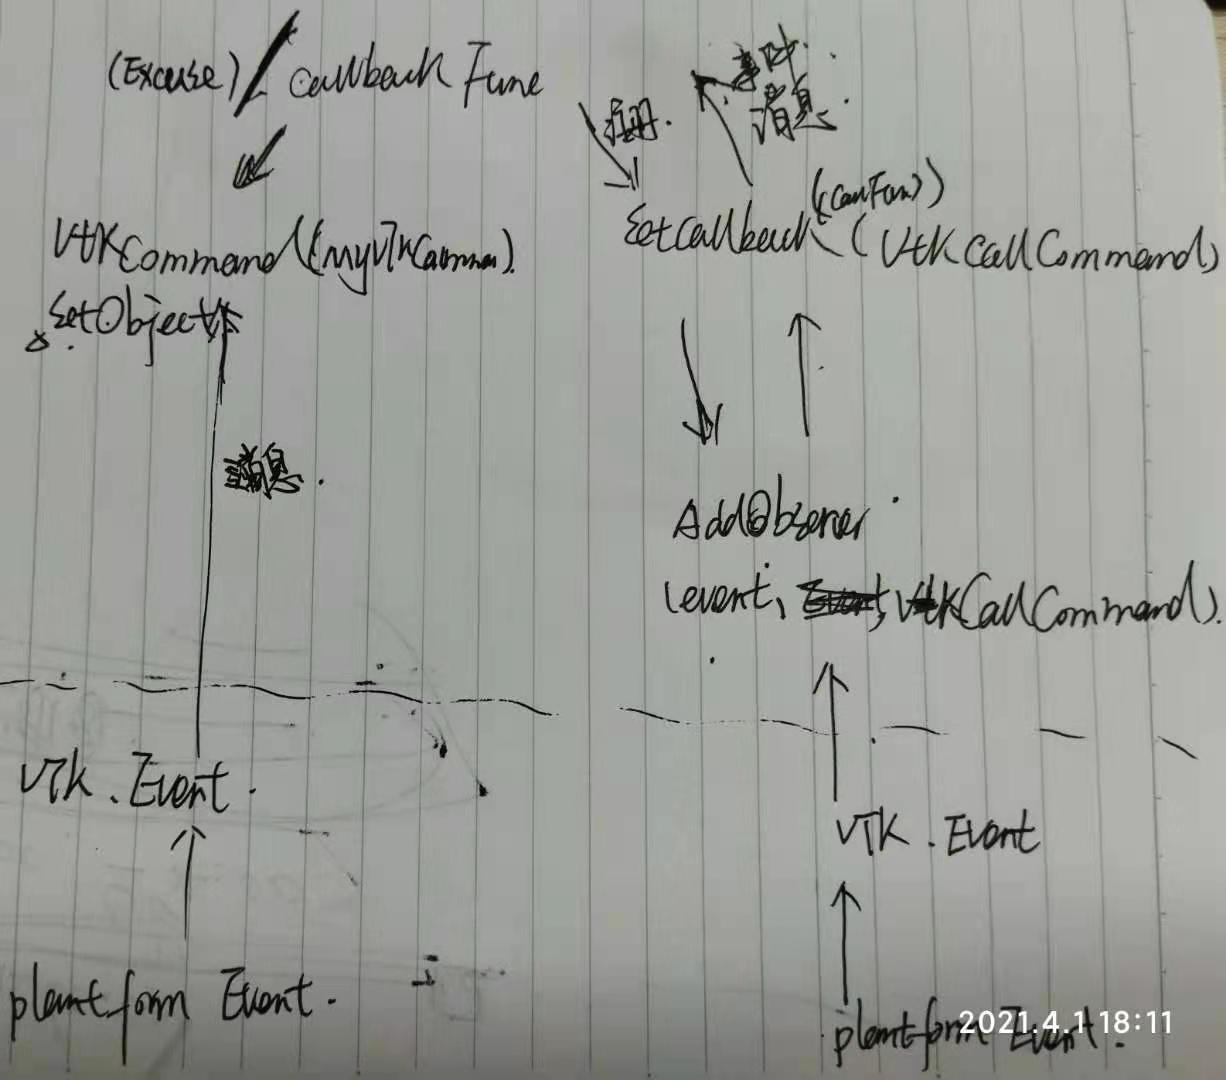 (Excuse) / Callback Func
事时
消息.
注册.
VtkCommand((myVTKCommn).
SetObject
SetCallback (VtkCallCommand)
消息.
AddObserver
(event, VtkCallCommand).
VTK. Event.
VTK. Event
plantform Event.
plantform Event.
2021.4.1 18:11